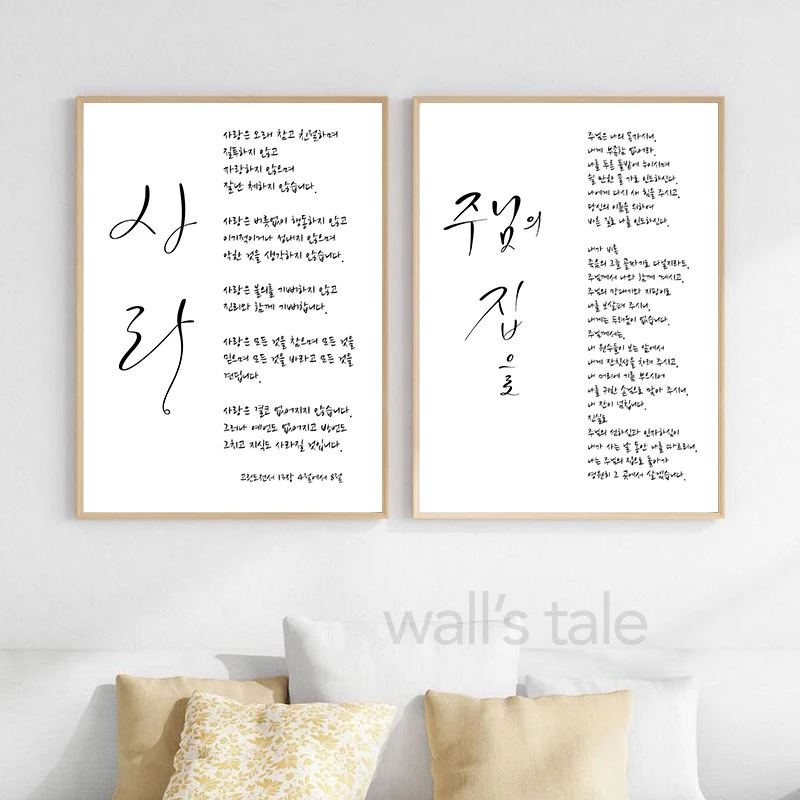 사랑
사랑은 오래 참고 친절하며
질투하지 않고
자랑하지 않으며
잘난 체하지 않습니다.
사랑은 버릇없이 행동하지 않고
이기적이거나 성내지 않으며
악한 것을 생각하지 않습니다.
사랑은 불의를 기뻐하지 않고
진리와 함께 기뻐합니다.
사랑은 모든 것을 참으며 모든 것을
믿으며 모든 것을 바라고 모든 것을
견딥니다.
사랑은 결코 없어지지 않습니다.
그러나 예언도 없어지고 방언도
그치고 지식도 사라질 것입니다.
고린도전서 13장 4절에서 8절
주님의
집
으로
주님은 나의 목자시니,
내게 부족함 없어라.
나를 푸른 풀밭에 누이시며
쉴 만한 물 가로 인도하신다.
나에게 다시 새 힘을 주시고,
당신의 이름을 위하여
바른 길로 나를 인도하신다.
내가 비록
죽음의 그늘 골짜기로 다닐지라도,
주님께서 나와 함께 계시고,
주님의 막대기와 지팡이로
나를 보살펴 주시니,
내게는 두려움이 없습니다.
주님께서는,
내 원수들이 보는 앞에서
내게 잔칫상을 차려 주시고,
내 머리에 기름 부으시어
나를 귀한 손님으로 맞아 주시니,
내 잔이 넘칩니다.
진실로
주님의 선하심과 인자하심이
내가 사는 날 동안 나를 따르리니,
나는 주님의 집으로 돌아가
영원히 그 곳에서 살겠습니다.
wall's tale